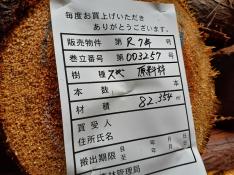 毎度お買上げいただき
ありがとうございます。
販売物件 第 R7年 号
巻立番号 第 003257 号
樹種 スギ 原料材
本数 本
材積 82.354 m³
買受人
住所氏名
搬出期限 自 年 月 日
至 年 月 日
森林管理局